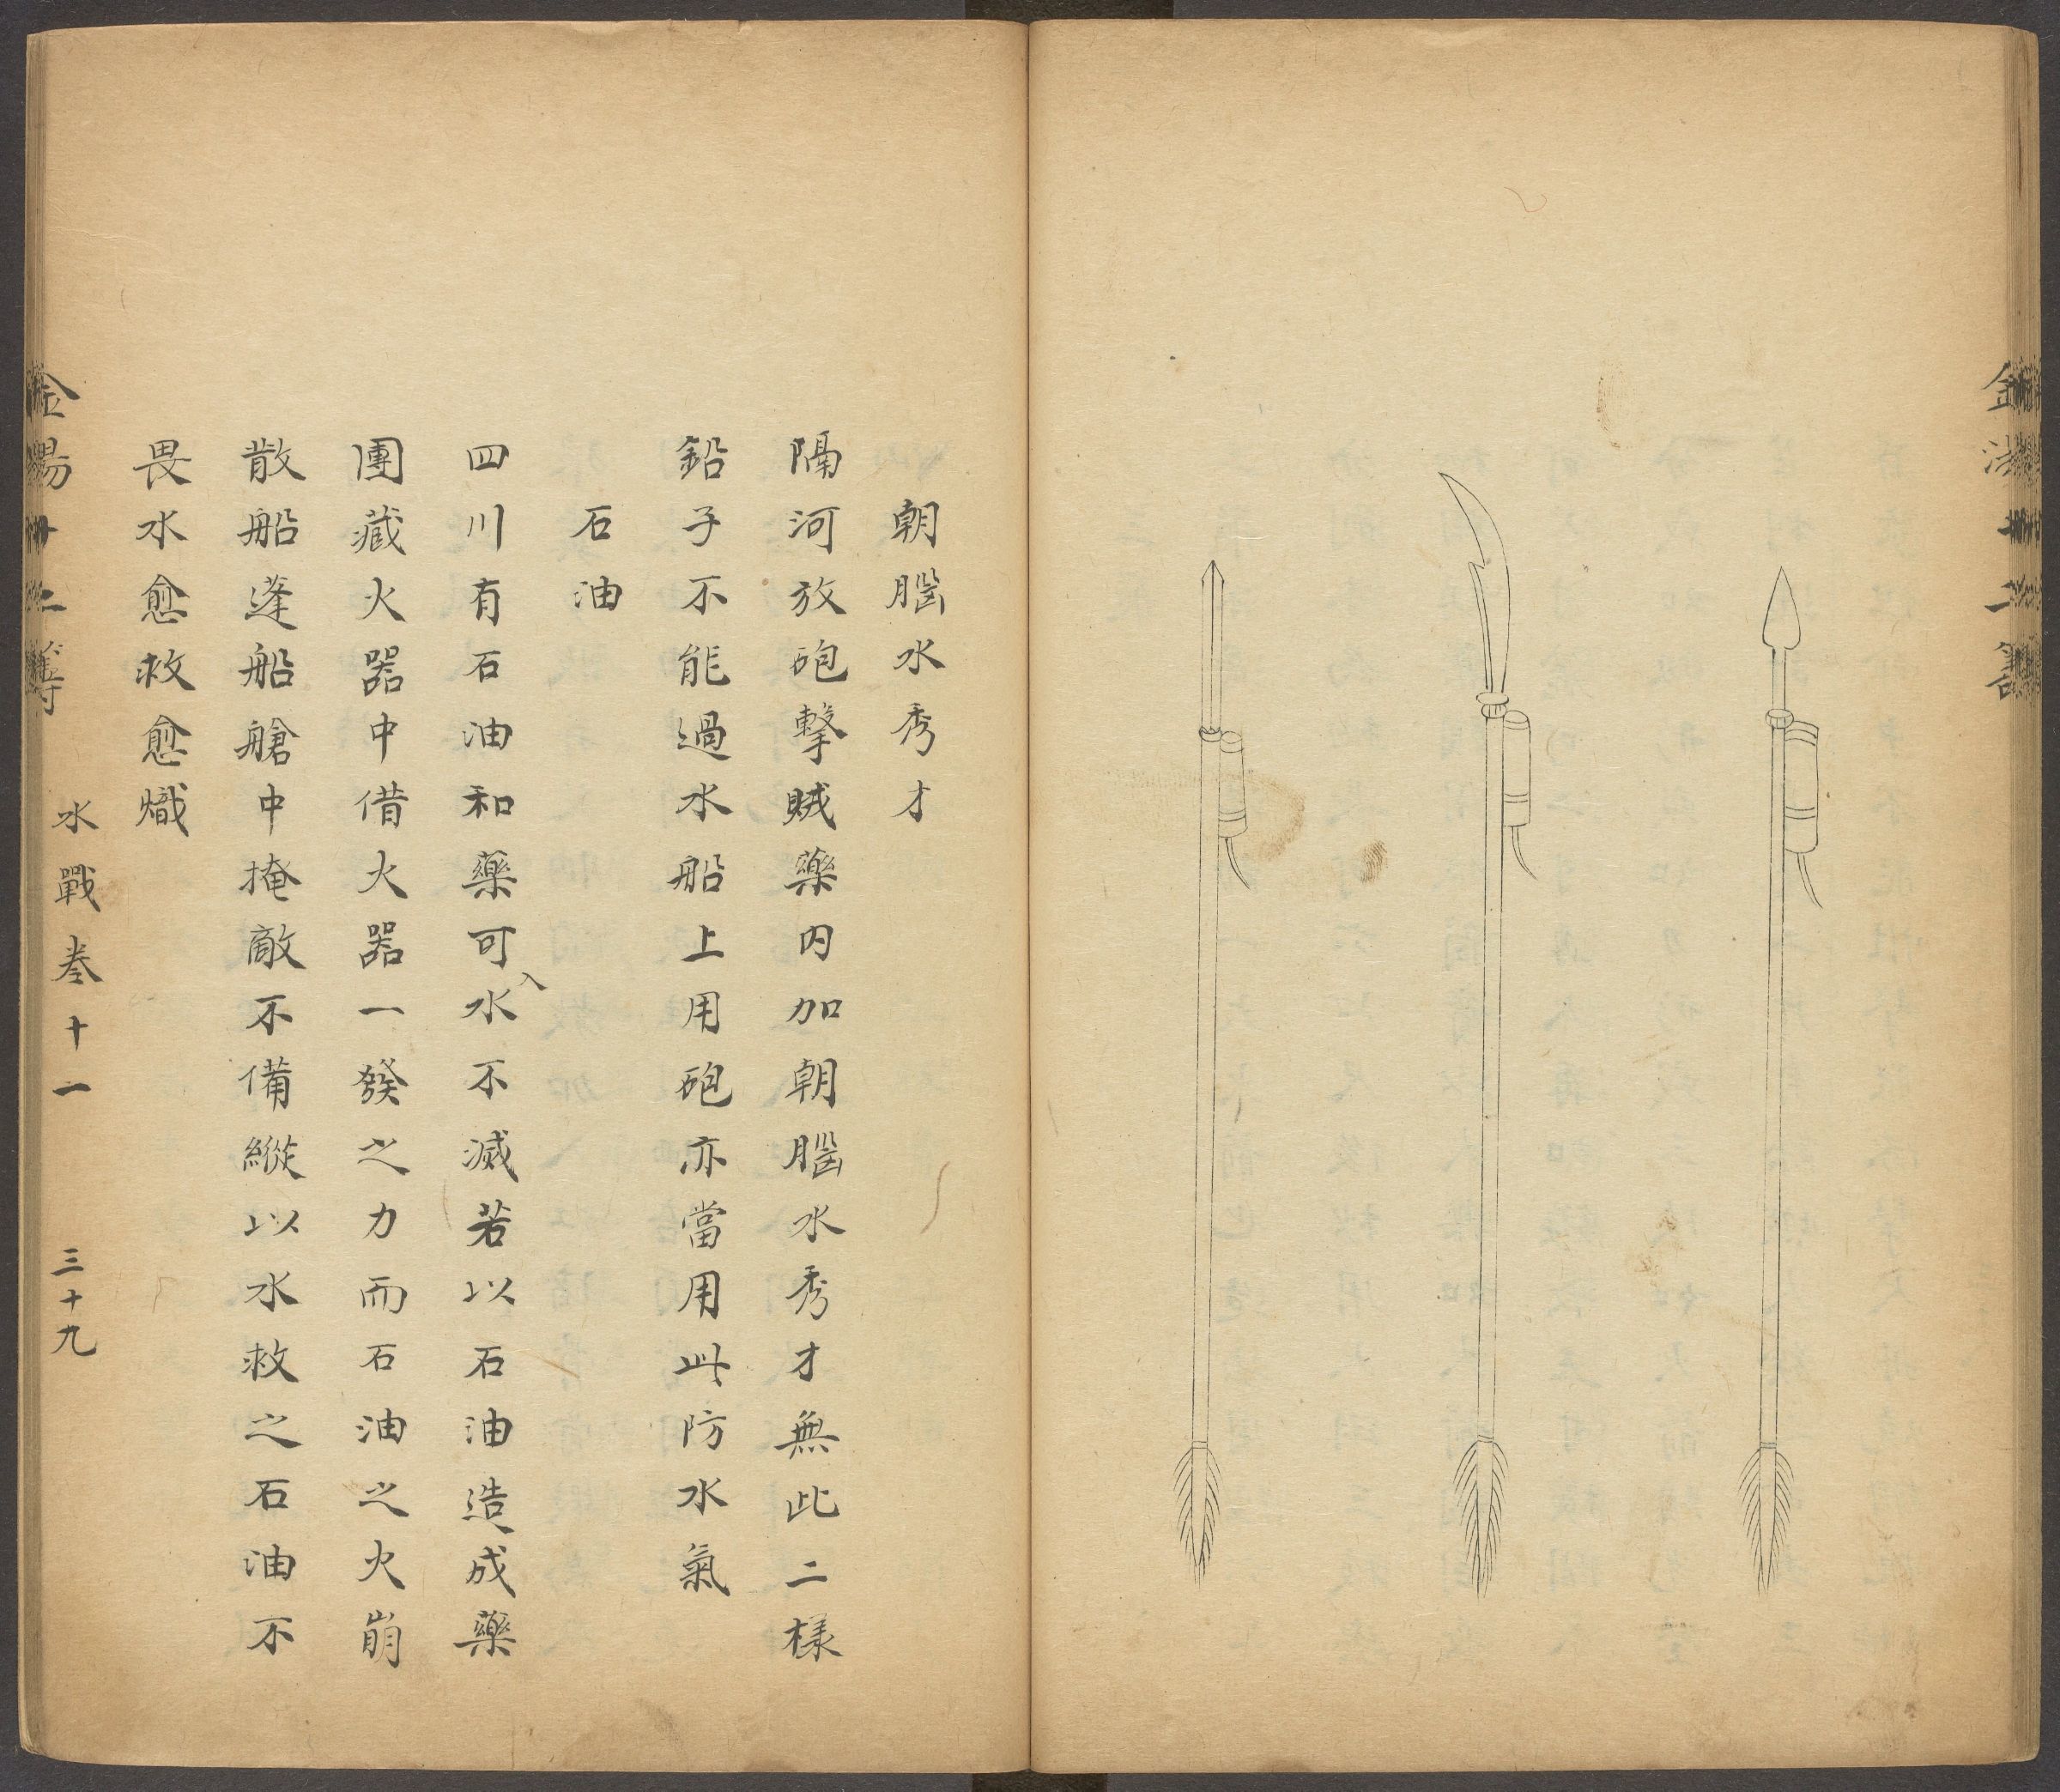 金湯十二籌
朝腦水秀才
隔河放砲擊賊藥內加朝腦水秀才無此二樣
鉛子不能過水船上用砲亦當用此防水氣
石油
四川有石油和藥可入水不滅若以石油造成藥
團藏火器中借火器一發之力而石油之火崩
散船蓬船艙中掩敵不備縱以水救之石油不
畏水愈救愈熾
金湯十二籌 水戰卷十一 三十九